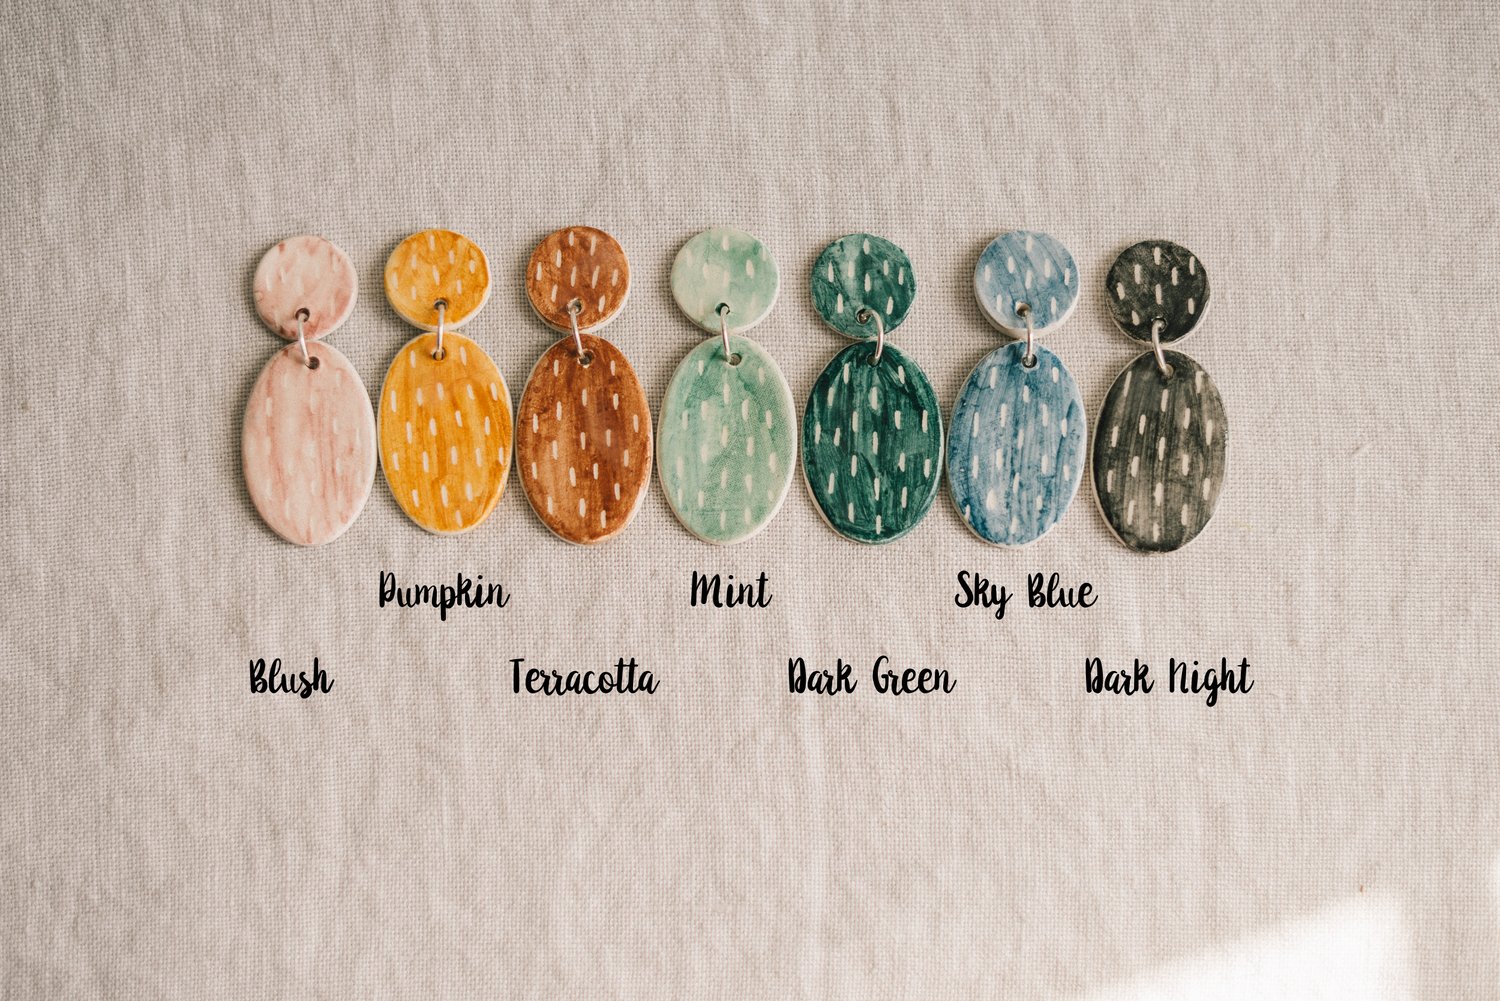 Pumpkin Mint Sky Blue
Blush Terracotta Dark Green Dark Night